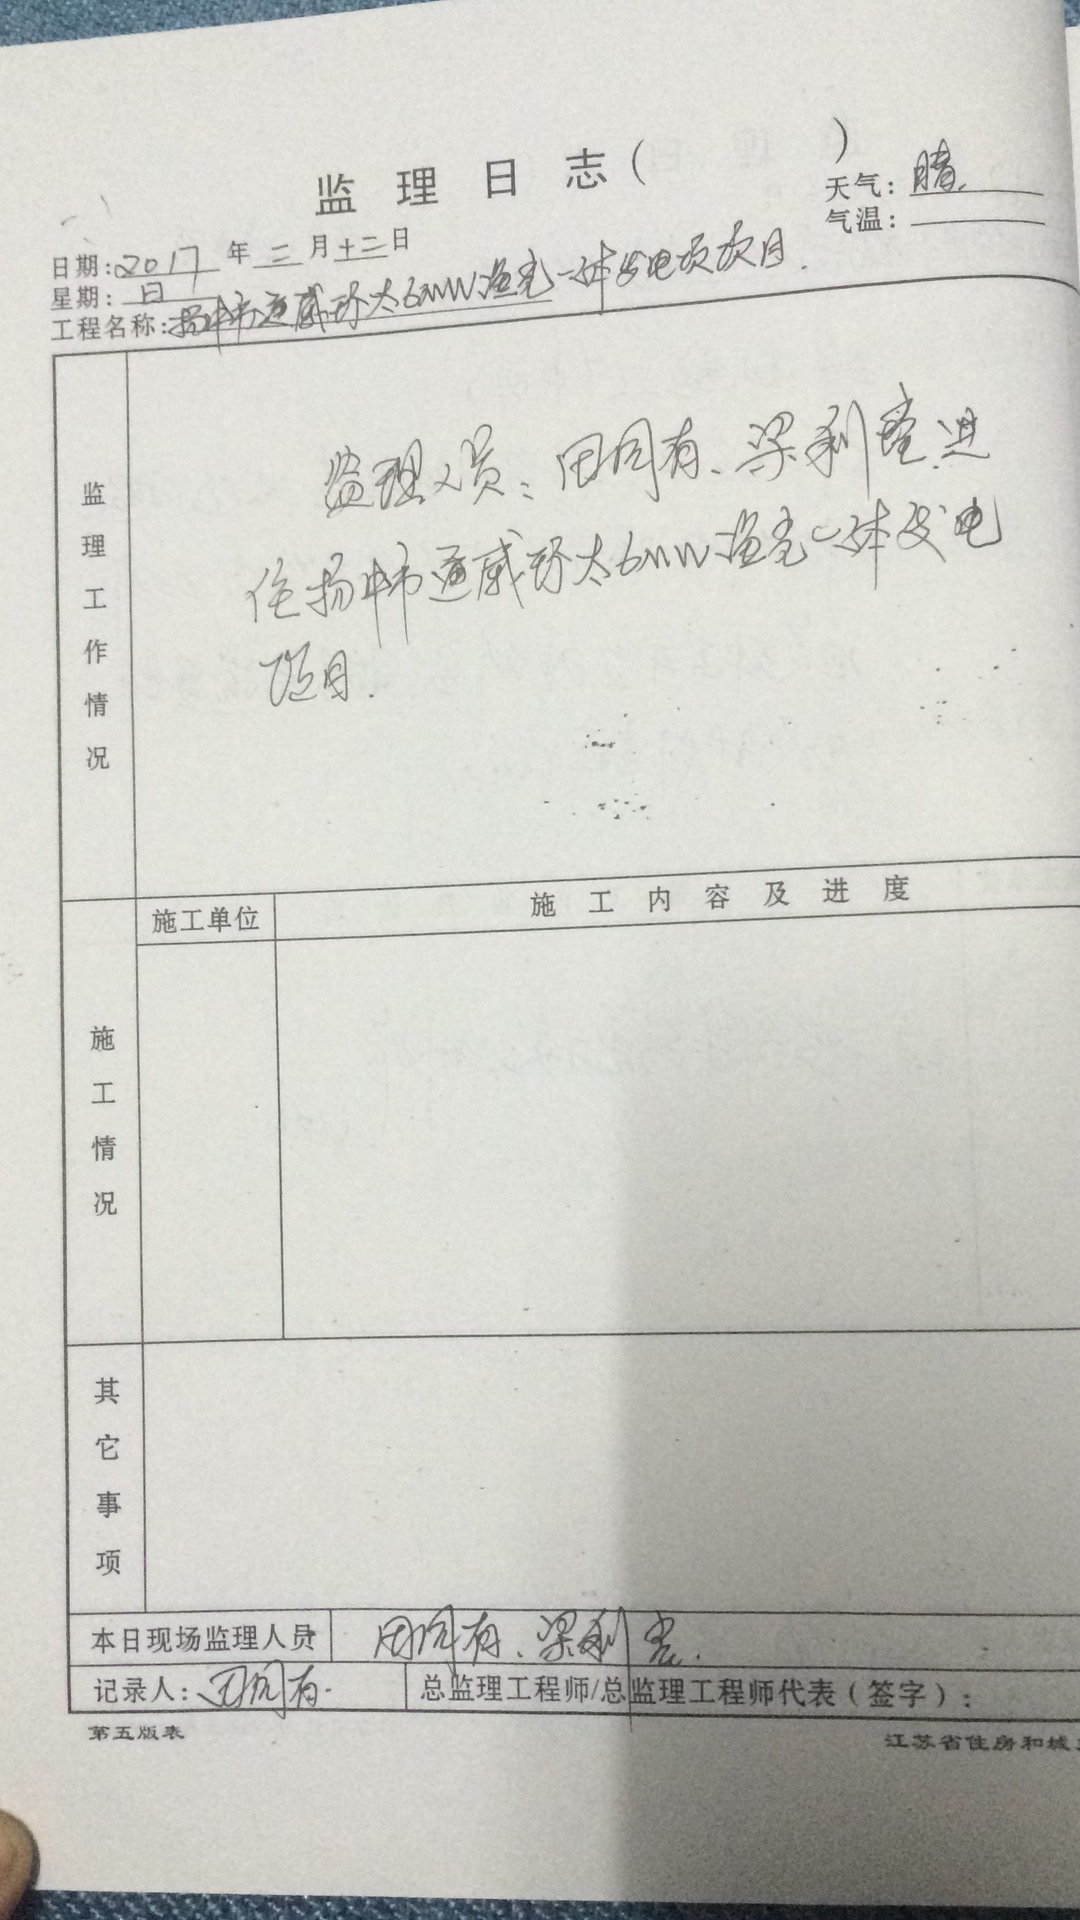 监理日志(　　　)
天气: 晴
气温:
日期: 2017年二月十二日
星期: 日
工程名称: 扬中市通威环太6MW渔光一体发电项目.
监理工作情况
监理人员: 田同有、梁利 进
住扬中市通威环太6MW渔光一体发电
项目.
施工情况
施工单位
施工内容及进度
其它事项
本日现场监理人员 田同有、梁利
记录人: 田同有. 总监理工程师/总监理工程师代表(签字):
第五版表 江苏省住房和城